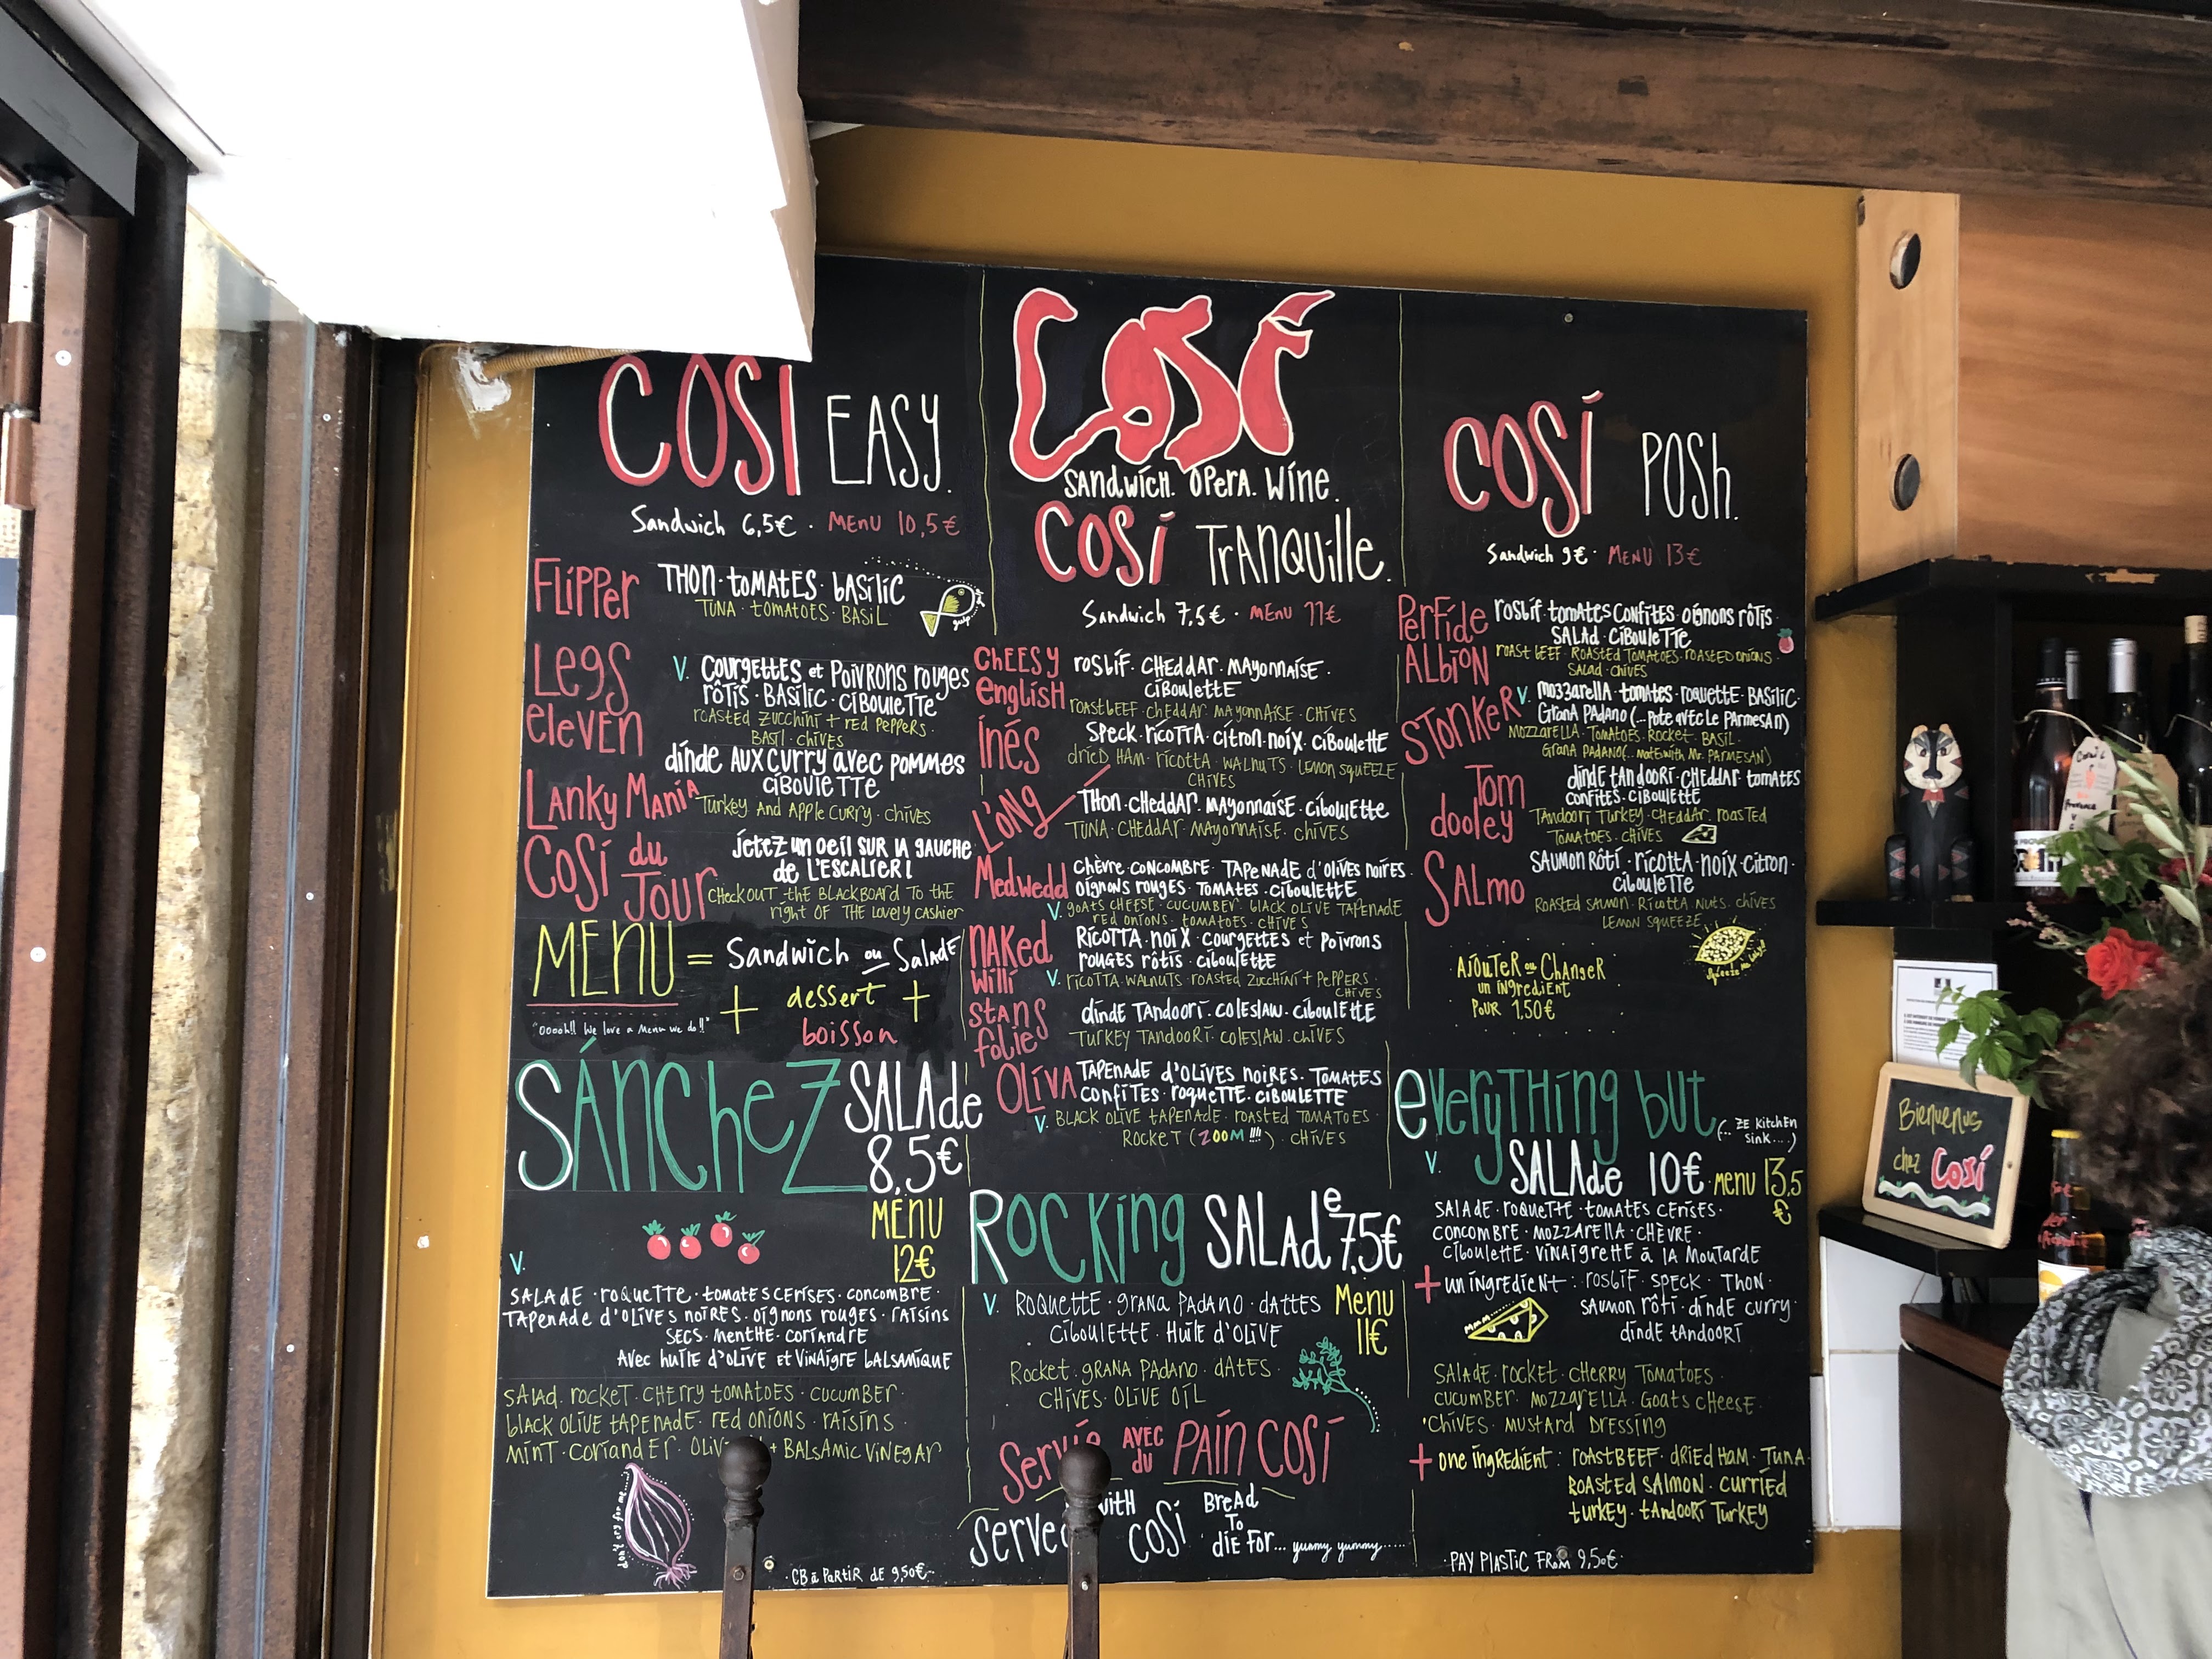 COSI EASY.
Sandwich 6,5€ · MENU 10,5€
FLIPPER
THON · TOMATES · BASILIC
TUNA · TOMATOES · BASIL
gulp
LEGS ELEVEN
V. COURGETTES et POIVRONS rouges
rôtis · BASILIC · CIBOULETTE
roasted zucchini + red peppers ·
BASIL · CHIVES
LANKY MANIA
dinde AUX curry avec pommes
CIBOULETTE
Turkey And Apple curry · chives
COSÍ du JOUR
jetez un oeil sur la gauche
de L'ESCALIER!
CHECKOUT the BLACKBOARD To the
right OF THE Lovely cashier
MENU = Sandwich ou Salade
+ dessert +
boisson
"Ooooh!! We love a Menu we do!!"
SÁNCHEZ SALAde
8,5€
MENU
12€
V.
SALADE · roquette · tomates cerises · concombre ·
TAPENADE d'OLIVES noires · oignons rouges · raisins
secs · menthe · coriandre
Avec huile d'OLIVE et VINAIGRE BALSAMIQUE
SALAD · rocket · CHERRY tomatoes · cucumber ·
BLACK OLIVE TAPENADE · red onions · raisins ·
MINT · coriander · + BALSAMIC VINEGAR
don't cry for me...
· CB à PARTIR DE 9,50€ ·
COSÍ
SANDWICH. OPERA. WINE.
COSÍ TRANQUILLE.
Sandwich 7,5€ · MENU 11€
CHEESY ENGLISH
rosbif · CHEDDAR · MAYONNAISE ·
CIBOULETTE
roastbeef · cheddar · mayonnaise · CHIVES
INÉS
Speck · ricotta · citron · noix · ciboulette
dried HAM · ricotta · WALNUTS · Lemon squeeze
CHIVES
L'ONG
THON · CHEDDAR · MAYONNAISE · ciboulette
TUNA · CHEDDAR · MAYONNAISE · CHIVES
Medwedd
Chèvre · concombre · TAPENADE d'olives noires ·
oignons rouges · TOMATES · CIBOULETTE
V. goats cheese · cucumber · black olive tapenade
red onions · tomatoes · chives
NAKED WILLI
RICOTTA · noix · courgettes et Poivrons
rouges rôtis · ciboulette
V. ricotta · walnuts · roasted zucchini + peppers ·
CHIVES
STANS folies
dinde Tandoori · coleslaw · ciboulette
TURKEY TANDOORI · COLESLAW · CHIVES
OLIVA
TAPENADE d'OLIVES noires · TOMATES
confites · roquette · CIBOULETTE
V. BLACK OLIVE TAPENADE · roasted TOMATOES ·
ROCKET (ZOOM !!!!) · CHIVES
ROCKING SALADe 7,5€
V. ROQUETTE · GRANA PADANO · DATTES
CIBOULETTE · HUILE d'OLIVE
Menu
11€
Rocket · GRANA PADANO · dates ·
CHIVES · OLIVE OIL
AVEC du PAIN COSÍ
WITH COSÍ BREAD
To
DIE FOR... yummy yummy.....
COSÍ POSH.
Sandwich 9€ · MENU 13€
PERFIDE ALBION
rosbif · tomates confites · oignons rôtis ·
SALAD · CIBOULETTE
roast beef · roasted tomatoes · roasted onions ·
SALAD · CHIVES
STONKER
V. mozzarella · tomates · roquette · BASILIC ·
Grana Padano (... pote avec Le Parmesan)
mozzarella · Tomatoes · Rocket · BASIL ·
Grana Padano (.. mate with Mr. PARMESAN)
Tom dooley
dinde tandoori · cheddar tomates
confites · ciboulette
Tandoori Turkey · CHEDDAR · roasted
Tomatoes · CHIVES
SALMO
SAUMON RÔTI · ricotta · noix · citron ·
ciboulette
ROASTED SALMON · Ricotta · nuts · CHIVES
LEMON SQUEEZE
AJOUTER ou CHANGER
un ingredient
Pour 1,50€
EVERYTHING but
(.. ZE KITCHEN
SINK....)
V. SALADE 10€ menu 13,5
€
SALADE · roquette · tomates cerises ·
concombre · MOZZARELLA · CHÈVRE ·
CIBOULETTE · VINAIGRETTE à LA MOUTARDE
+ un ingredient : rosbif · SPECK · THON ·
SAUMON rôti · dinde curry ·
dinde tandoori
mmm
SALADE · rocket · CHERRY TOMATOES ·
cucumber · MOZZARELLA · Goats CHEESE ·
CHIVES · MUSTARD DRESSING
+ one ingredient : roastbeef · dried Ham · Tuna ·
ROASTED SALMON · curried
turkey · tandoori Turkey
· PAY PLASTIC FROM 9,50€ ·
Bienvenus
chez Cosí